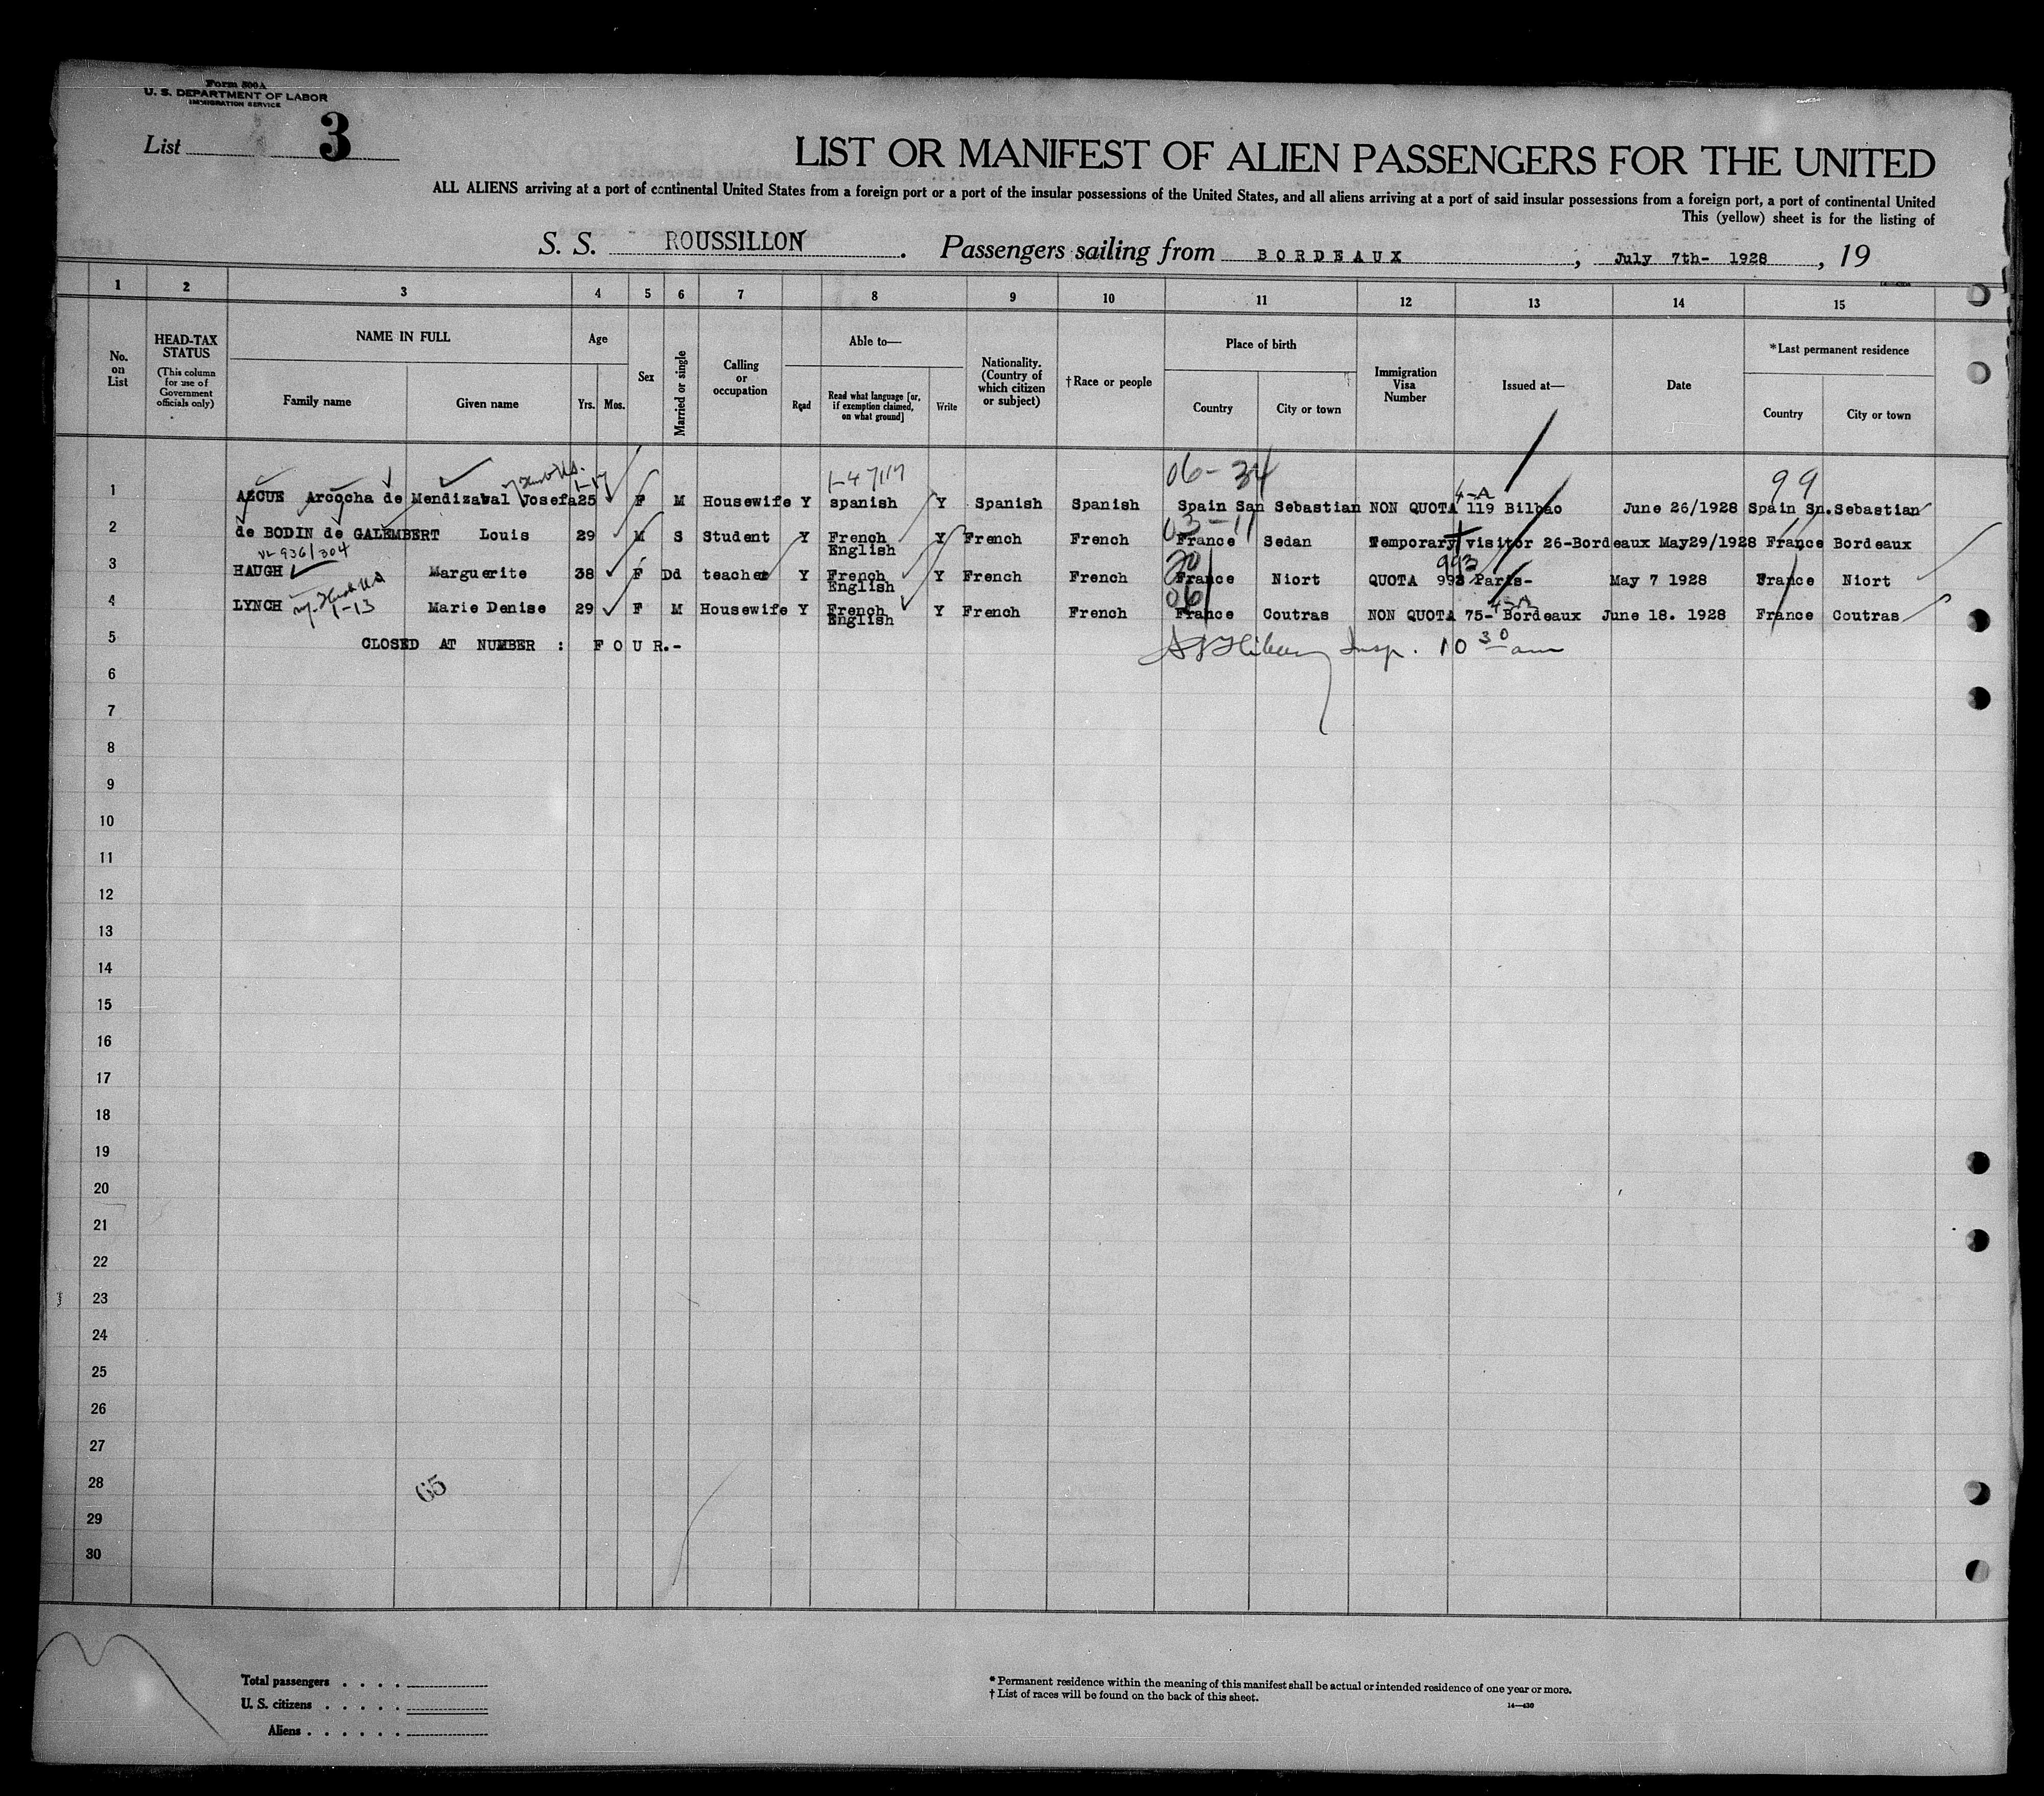 Form 500A
U. S. DEPARTMENT OF LABOR
IMMIGRATION SERVICE
List 3
LIST OR MANIFEST OF ALIEN PASSENGERS FOR THE UNITED
ALL ALIENS arriving at a port of continental United States from a foreign port or a port of the insular possessions of the United States, and all aliens arriving at a port of said insular possessions from a foreign port, a port of continental United
This (yellow) sheet is for the listing of
S. S. ROUSSILLON. Passengers sailing from BORDEAUX, July 7th- 1928, 19
1 2 3 4 5 6 7 8 9 10 11 12 13 14 15
No. on List
HEAD-TAX STATUS
(This column for use of Government officials only)
NAME IN FULL
Family name Given name
Age
Yrs. Mos.
Sex
Married or single
Calling or occupation
Able to—
Read
Read what language [or, if exemption claimed, on what ground]
Write
Nationality. (Country of which citizen or subject)
†Race or people
Place of birth
Country City or town
Immigration Visa Number
Issued at—
Date
*Last permanent residence
Country City or town
1-17 1-47117 06-34 4-A 99
1 AZCUE Arcocha de Mendizaval Josefa 25 F M Housewife Y spanish Y Spanish Spanish Spain San Sebastian NON QUOTA 119 Bilbao June 26/1928 Spain Sn.Sebastian
03-11
2 de BODIN de GALEMBERT Louis 29 M S Student Y French English Y French French France Sedan Temporary visitor 26-Bordeaux May29/1928 France Bordeaux
936/304 20 993
3 HAUGH Marguerite 38 F Dd teacher Y French English Y French French France Niort QUOTA 993 Paris- May 7 1928 France Niort
1-13 06 4-A
4 LYNCH Marie Denise 29 F M Housewife Y French English Y French French France Coutras NON QUOTA 75- Bordeaux June 18. 1928 France Coutras
5 CLOSED AT NUMBER : F O U R.-
Insp. 10 30 am
6
7
8
9
10
11
12
13
14
15
16
17
18
19
20
21
22
23
24
25
26
27
28
65
29
30
Total passengers . . . .
U. S. citizens . . . . .
Aliens . . . . . .
* Permanent residence within the meaning of this manifest shall be actual or intended residence of one year or more.
† List of races will be found on the back of this sheet.
14—430